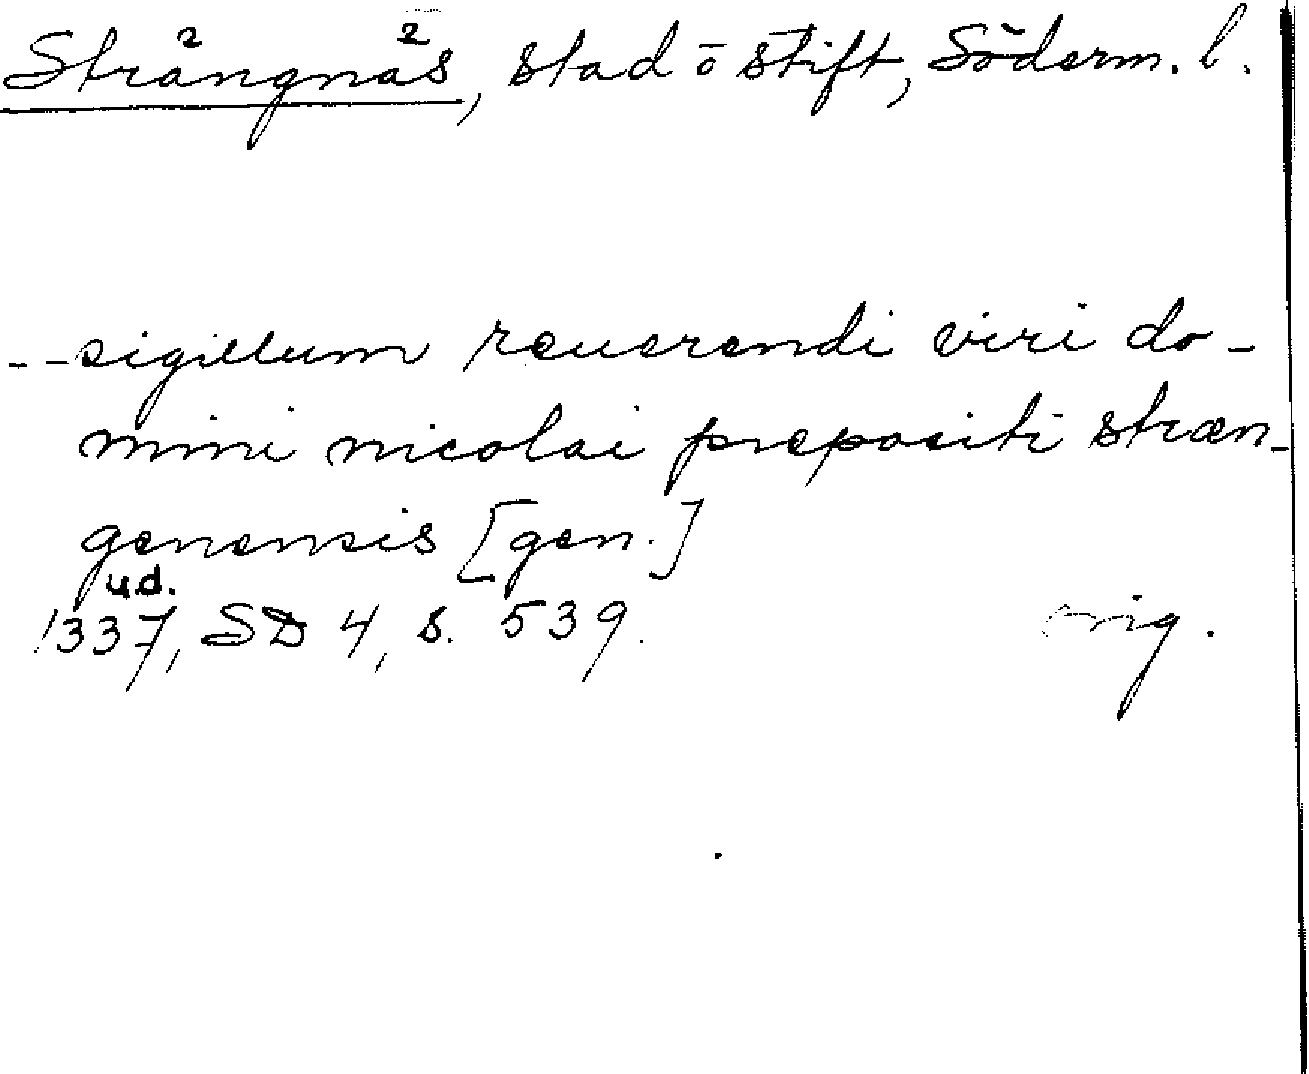 Strängnäs, stad o stift, Söderm. l.
- - sigillum reuerendi viri do-
mini nicolai prepositi stræn-
genensis [gen.]
u.d.
1337, SD 4, s. 539. orig.